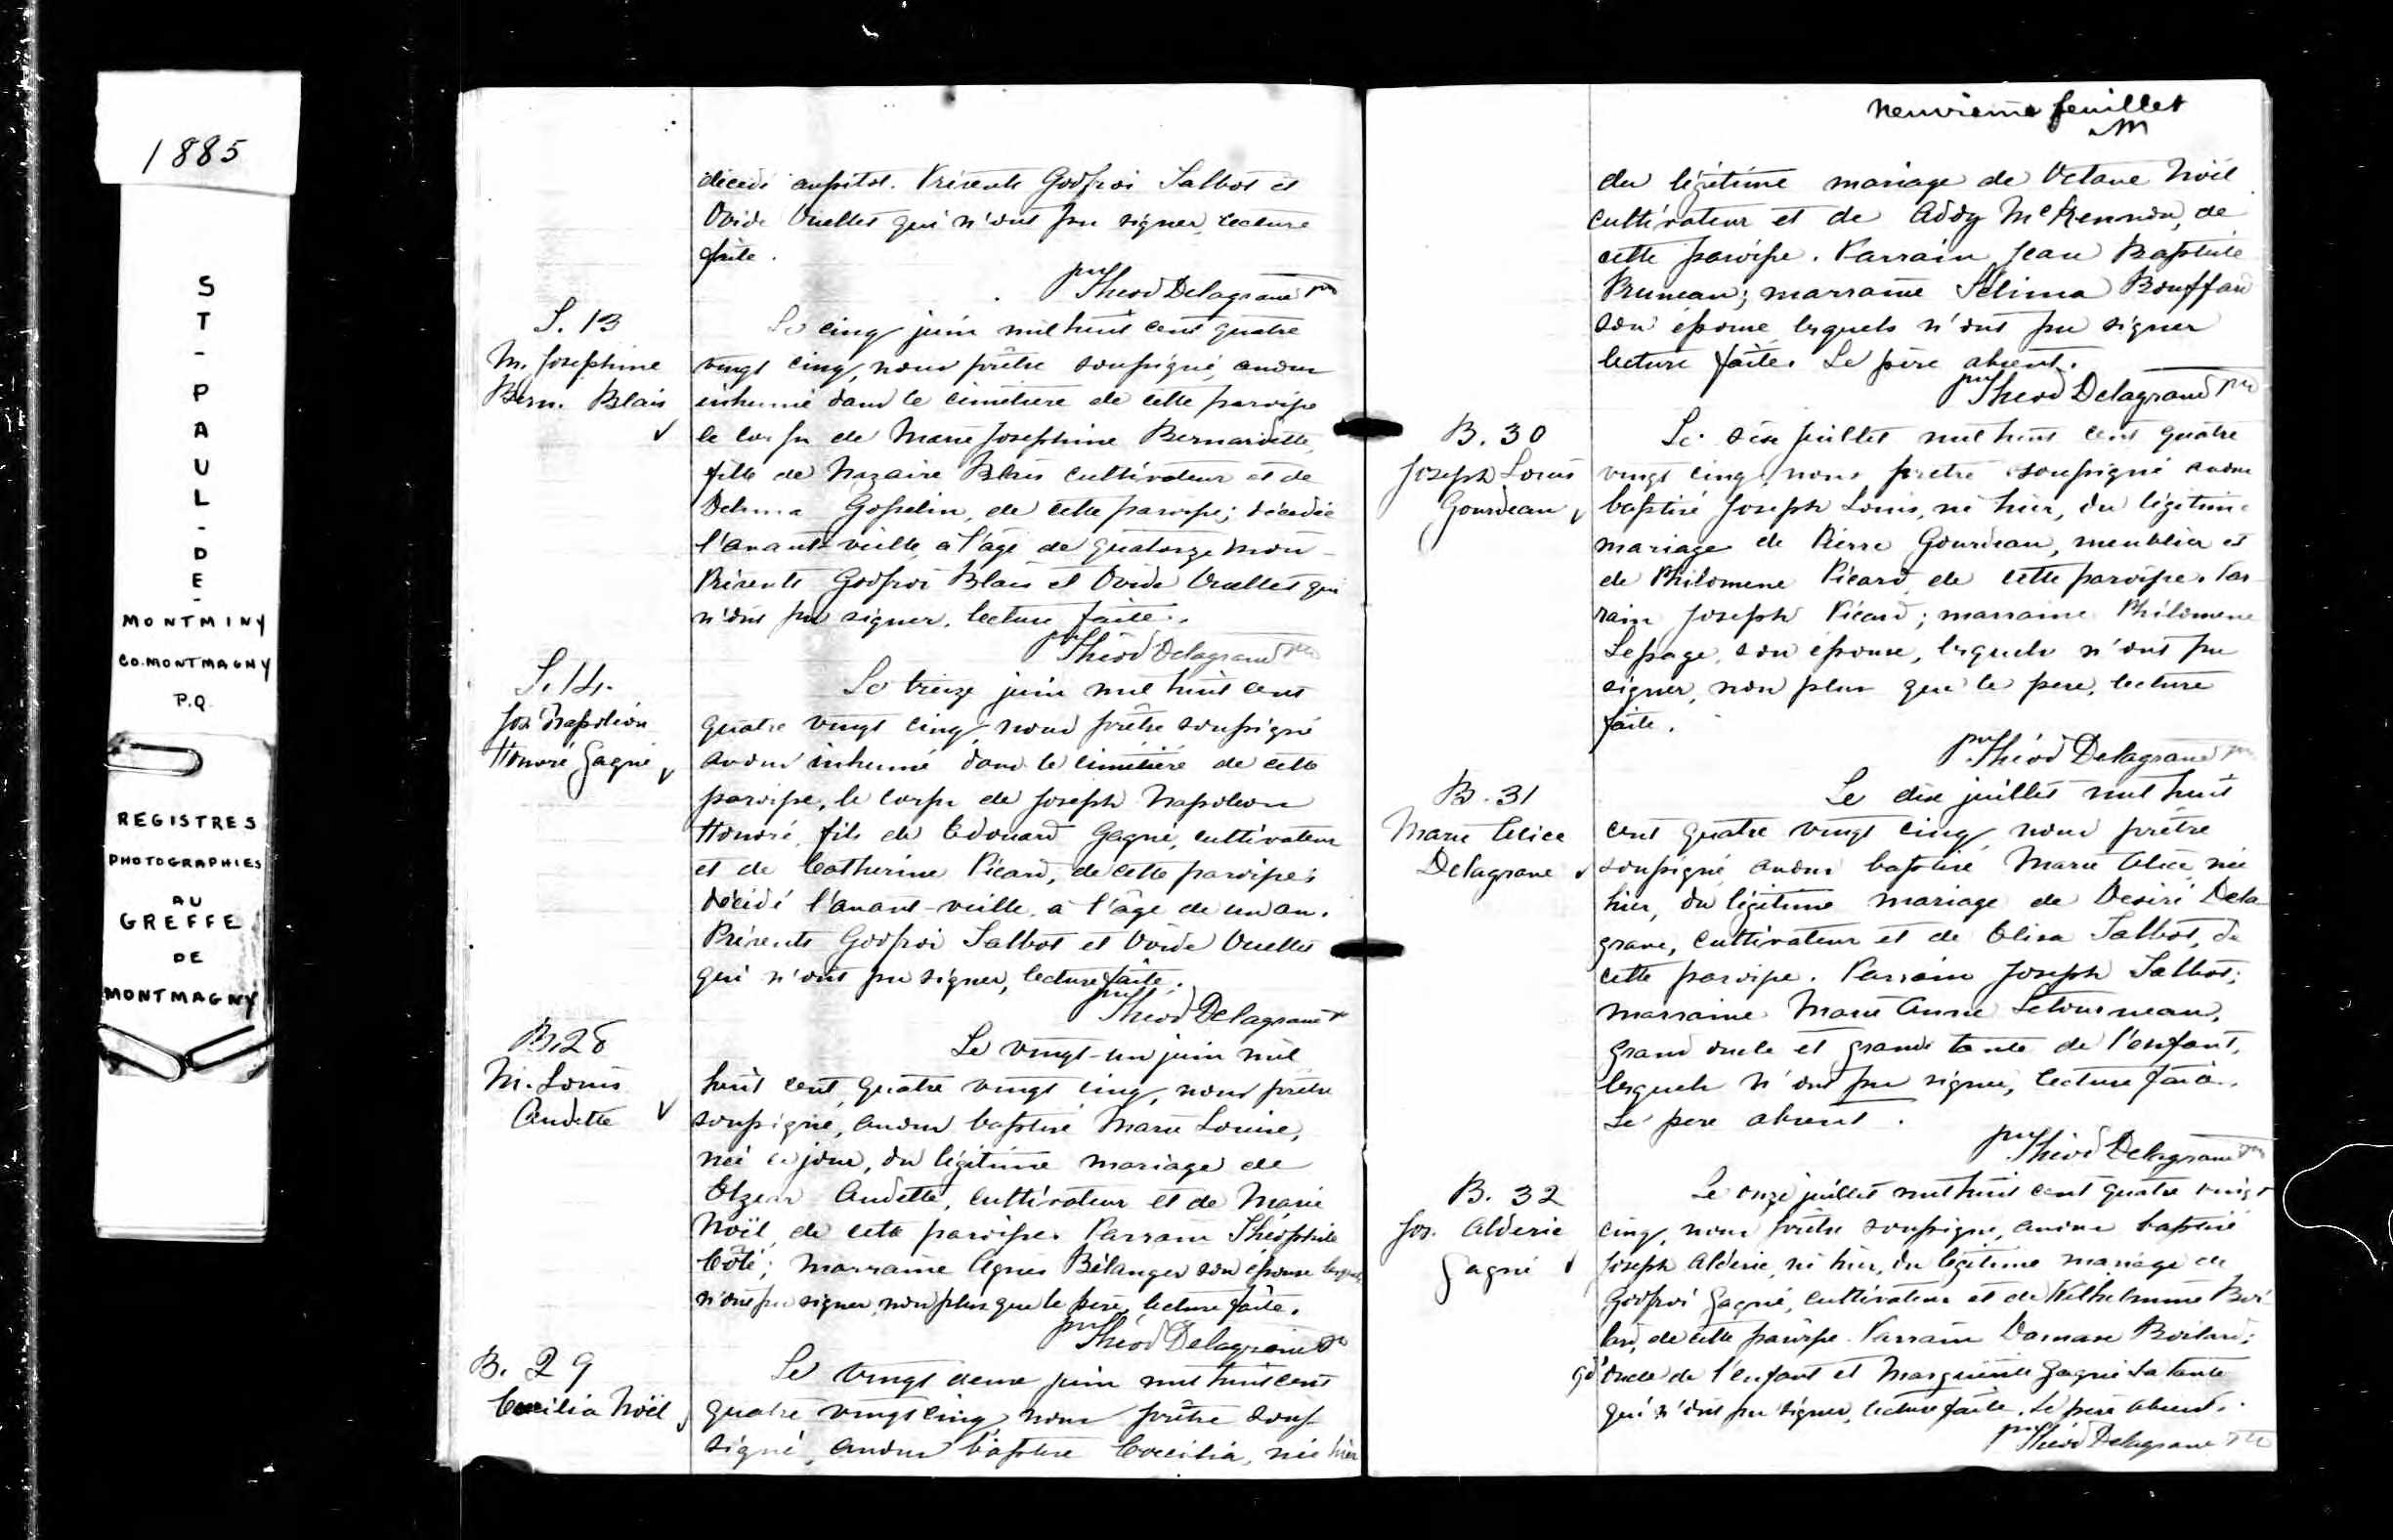 1885
ST-PAUL-DE-
MONTMINY
CO. MONTMAGNY
P.Q.
REGISTRES
PHOTOGRAPHIES
AU
GREFFE
DE
MONTMAGNY
décédé aussitot. Présents Godfroi Talbot et
Ovide Ouellet qui n'ont pu signer, lecture
faite.
Théod Delagrave ptre
S. 13
M. Josephine
Bern. Blais
Le cinq juin mil huit cent quatre
vingt cinq, nous prêtre soussigné, avons
inhumé dans le cimetiere de cette paroisse
le corps de Marie Josephine Bernardette,
fille de Nazaire Blais cultivateur et de
Delima Gosselin, de cette paroisse; décédée
l'avant-veille, à l'âge de quatorze mois
Présents Godfroi Blais et Ovide Ouellet qui
n'ont pu signer, lecture faite.
Théod Delagrave ptre
S. 14.
Jos. Napoléon
Honoré Gagné
Le treize juin mil huit cent
quatre vingt cinq, nous prêtre soussigné
avons inhumé dans le cimétière de cette
paroisse, le corps de Joseph Napoléon
Honoré, fils de Edouard Gagné, cultivateur
et de Catherine Picard, de cette paroisse;
décédé l'avant-veille, à l'âge de un an.
Présents Godfroi Talbot et Ovide Ouellet
qui n'ont pu signer, lecture faite.
Théod Delagrave
B. 28
M. Louis
Audette
Le vingt-un juin mil
huit cent quatre vingt cinq, nous prêtre
soussigné, avons baptisé Marie Louise,
née ce jour, du légitime mariage de
Elzear Audette, cultivateur et de Marie
Noël, de cette paroisse. Parrain Théophile
Côté; marraine Agnes Bélanger son épouse lesquels
n'ont pu signer, non plus que le père, lecture faite.
Théod Delagrave
B. 29
Cecilia Noël
Le vingt deux juin mil huit cent
quatre vingt cinq, nous prêtre sous-
signé, avons baptisé Cecilia, née hier
neuvieme feuillet
du légitime mariage de Octave Noël
cultivateur et de Addy McKennon, de
cette paroisse. Parrain Jean Baptiste
Pruneau; marraine Sélima Bouffard
son épouse lesquels n'ont pu signer
lecture faite. Le père absent.
Théod Delagrave ptre
B. 30
Joseph Louis
Gourdeau
Le six juillet mil huit cent quatre
vingt cinq, nous prêtre soussigné avons
baptisé Joseph Louis, né hier, du légitime
mariage de Pierre Gourdeau, meublier et
de Philomene Picard, de cette paroisse. Par-
rain Joseph Picard; marraine Philomene
Lepage, son épouse, lesquels n'ont pu
signer, non plus que le pere, lecture
faite.
Théod Delagrave
B. 31
Marie Alice
Delagrave
Le dix juillet mil huit
cent quatre vingt cinq, nous prêtre
soussigné avons baptisé Marie Alice, née
hier, du légitime mariage de Desiré Dela-
grave, cultivateur et de Elisa Talbot, de
cette paroisse. Parrain Joseph Talbot;
marraine Marie Anne Letourneau,
grand oncle et grande tante de l'enfant,
lesquels n'ont pu signer, lecture faite.
Le pere absent.
Théod Delagrave
B. 32
Jos. Alderie
Gagné
Le onze juillet mil huit cent quatre vingt
cinq, nous prêtre soussigné, avons baptisé
Joseph Alderie, né hier, du légitime mariage de
Godfroi Gagné, cultivateur et de Wilhelmine Boi-
lard, de cette paroisse. Parrain Damase Boilard;
gd oncle de l'enfant et Marguerite Gagné sa tante
qui n'ont pu signer, lecture faite. Le père absent.
Théod Delagrave